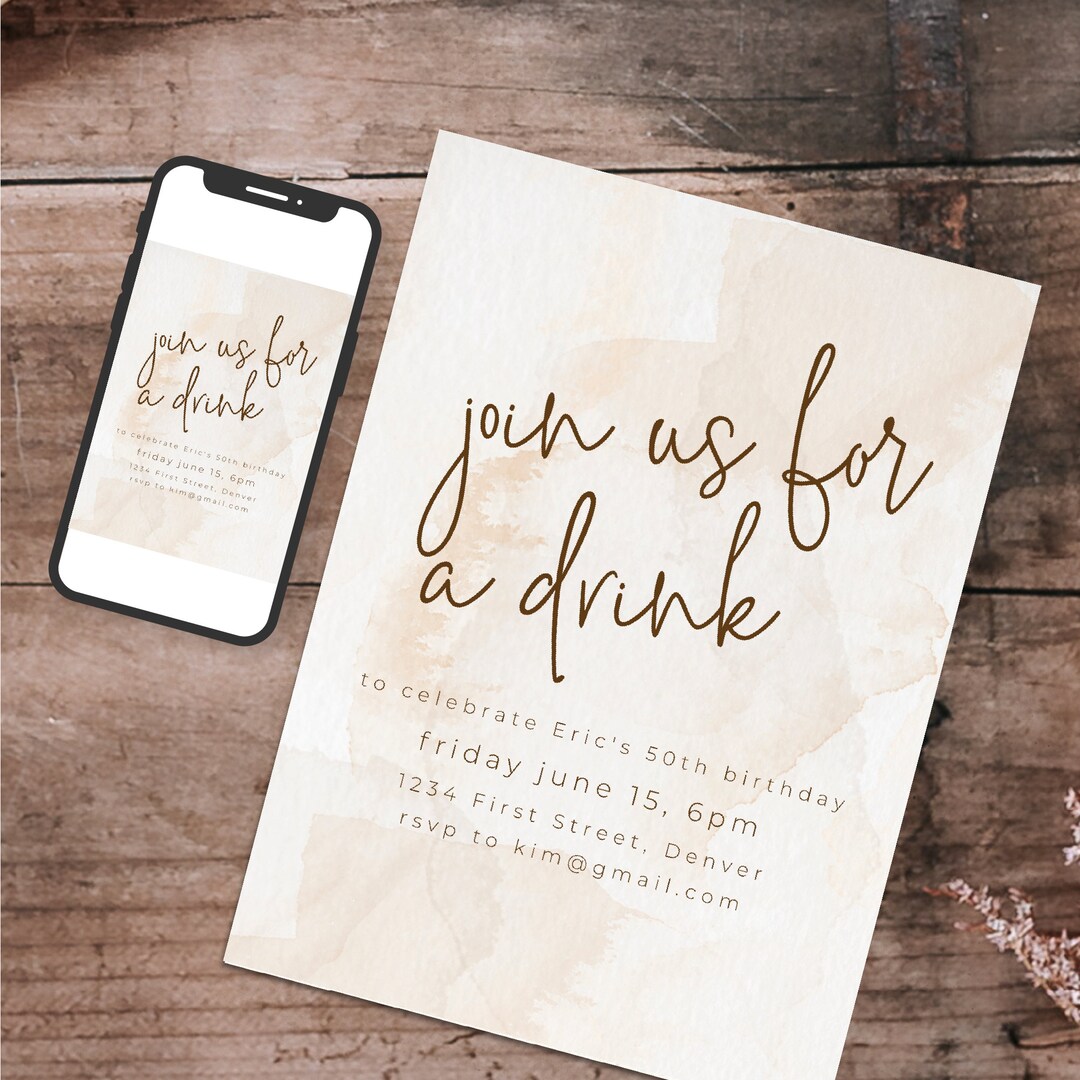 join us for
a drink
to celebrate Eric's 50th birthday
friday june 15, 6pm
1234 First Street, Denver
rsvp to kim@gmail.com
join us for
a drink
to celebrate Eric's 50th birthday
friday june 15, 6pm
1234 First Street, Denver
rsvp to kim@gmail.com